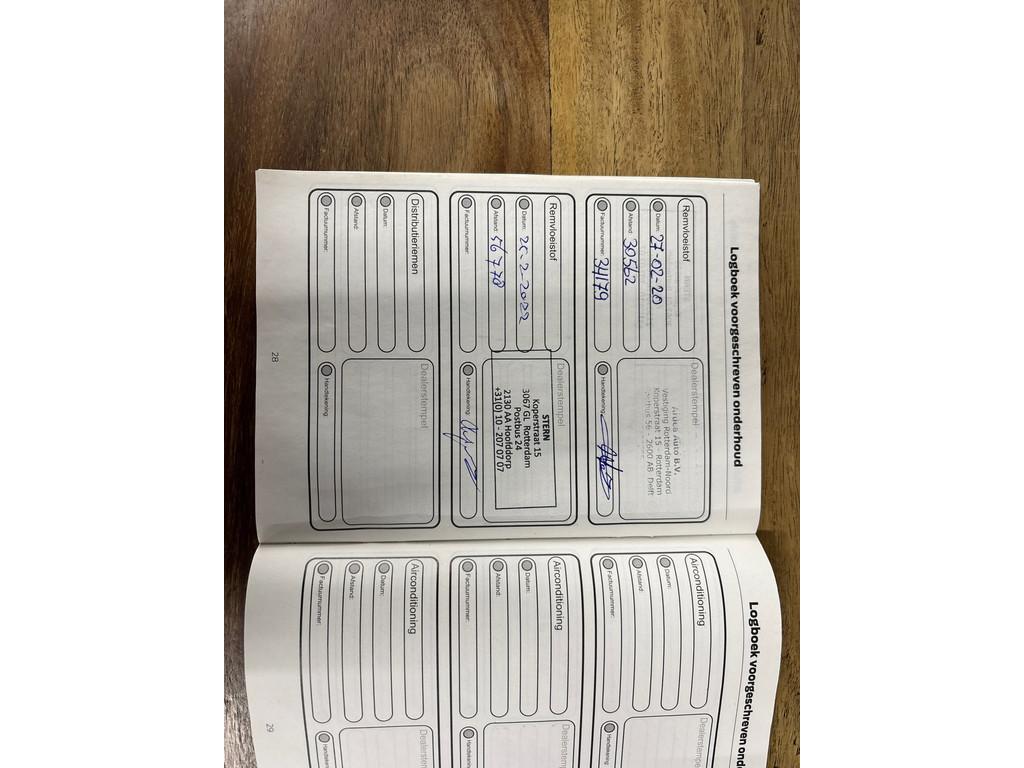 Logboek voorgeschreven onderhoud
Remvloeistof
Datum: 27-02-20
Afstand: 30562
Factuurnummer: 34179
Dealerstempel
Auto B.V.
Vestiging Rotterdam-Noord
Koperstraat 15 - Rotterdam
56 - 2600 AB Delft
Handtekening:
Remvloeistof
Datum: 2-2022
Afstand: 56778
Factuurnummer:
Dealerstempel
STERN
Koperstraat 15
3067 GL Rotterdam
Postbus 24
2130 AA Hoofddorp
+31(0) 10 - 207 07 07
Handtekening:
Distributieriemen
Datum:
Afstand:
Factuurnummer:
Dealerstempel
Handtekening:
28
Logboek voorgeschreven ond
Airconditioning
Datum:
Afstand:
Factuurnummer:
Dealerstempel
Handtekening:
Airconditioning
Datum:
Afstand:
Factuurnummer:
Dealerstem
Handtekening:
Airconditioning
Datum:
Afstand:
Factuurnummer:
Dealerstem
Handteken
29